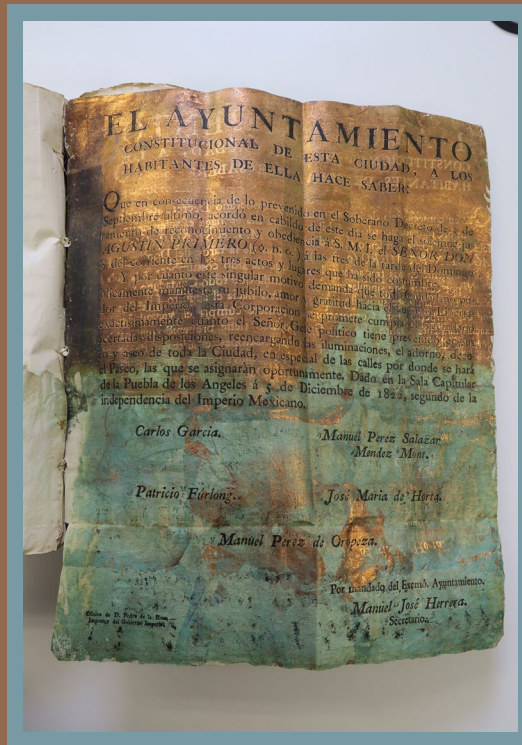 EL AYUNTAMIENTO
CONSTITUCIONAL DE ESTA CIUDAD, A LOS
HABITANTES DE ELLA HACE SABER:
Que en consecuencia de lo prevenido en el Soberano Decreto de de
Septiembre último, acordó en cabildo de este dia se haga el solemne ju-
ramento de reconocimiento y obediencia á S. M. I. el SEÑOR DON
AGUSTIN PRIMERO (q. D. G.) á las tres de la tarde del Domingo,
del corriente en los tres actos y lugares que ha sido costumbre.
Y por cuanto este singular motivo demanda que todo
manifieste su júbilo, amor y gratitud hacia
del Imperio, esta Corporacion se promete cumpla
exactisimamente cuanto el Señor Gefe político tiene prevenido en sus
acertadas disposiciones, reencargando las iluminaciones, el adorno, deco-
ro y aseo de toda la Ciudad, en especial de las calles por donde se hará
el Paseo, las que se asignarán oportunimente. Dado en la Sala Capitular
de la Puebla de los Angeles á 5 de Diciembre de 1822, segundo de la
independencia del Imperio Mexicano.
Carlos Garcia.
Manuel Perez Salazar
Mendez Mont.
Patricio Furlong.
José Maria de Horta.
Manuel Perez de Oropeza.
Por mandado del Excmô. Ayuntamiento.
Manuel José Herrera.
Secretario.
Oficina de D. Pedro de la Rosa,
Impresor del Gobierno Imperial.